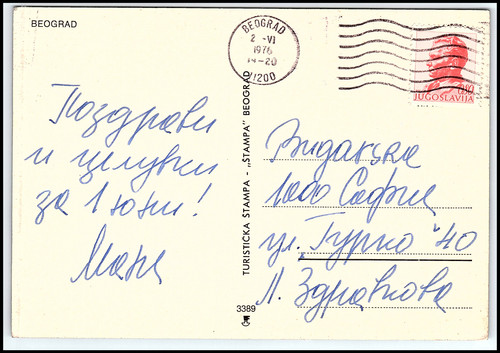 BEOGRAD
BEOGRAD
2 -VI
1976
14-20
11200
0.80
JUGOSLAVIJA
Поздрави
и целувки
за 1 юни!
TURISTIČKA ŠTAMPA - „ŠTAMPA" BEOGRAD
3389
1000 София
ул. Гурко 40
Л. Здравкова